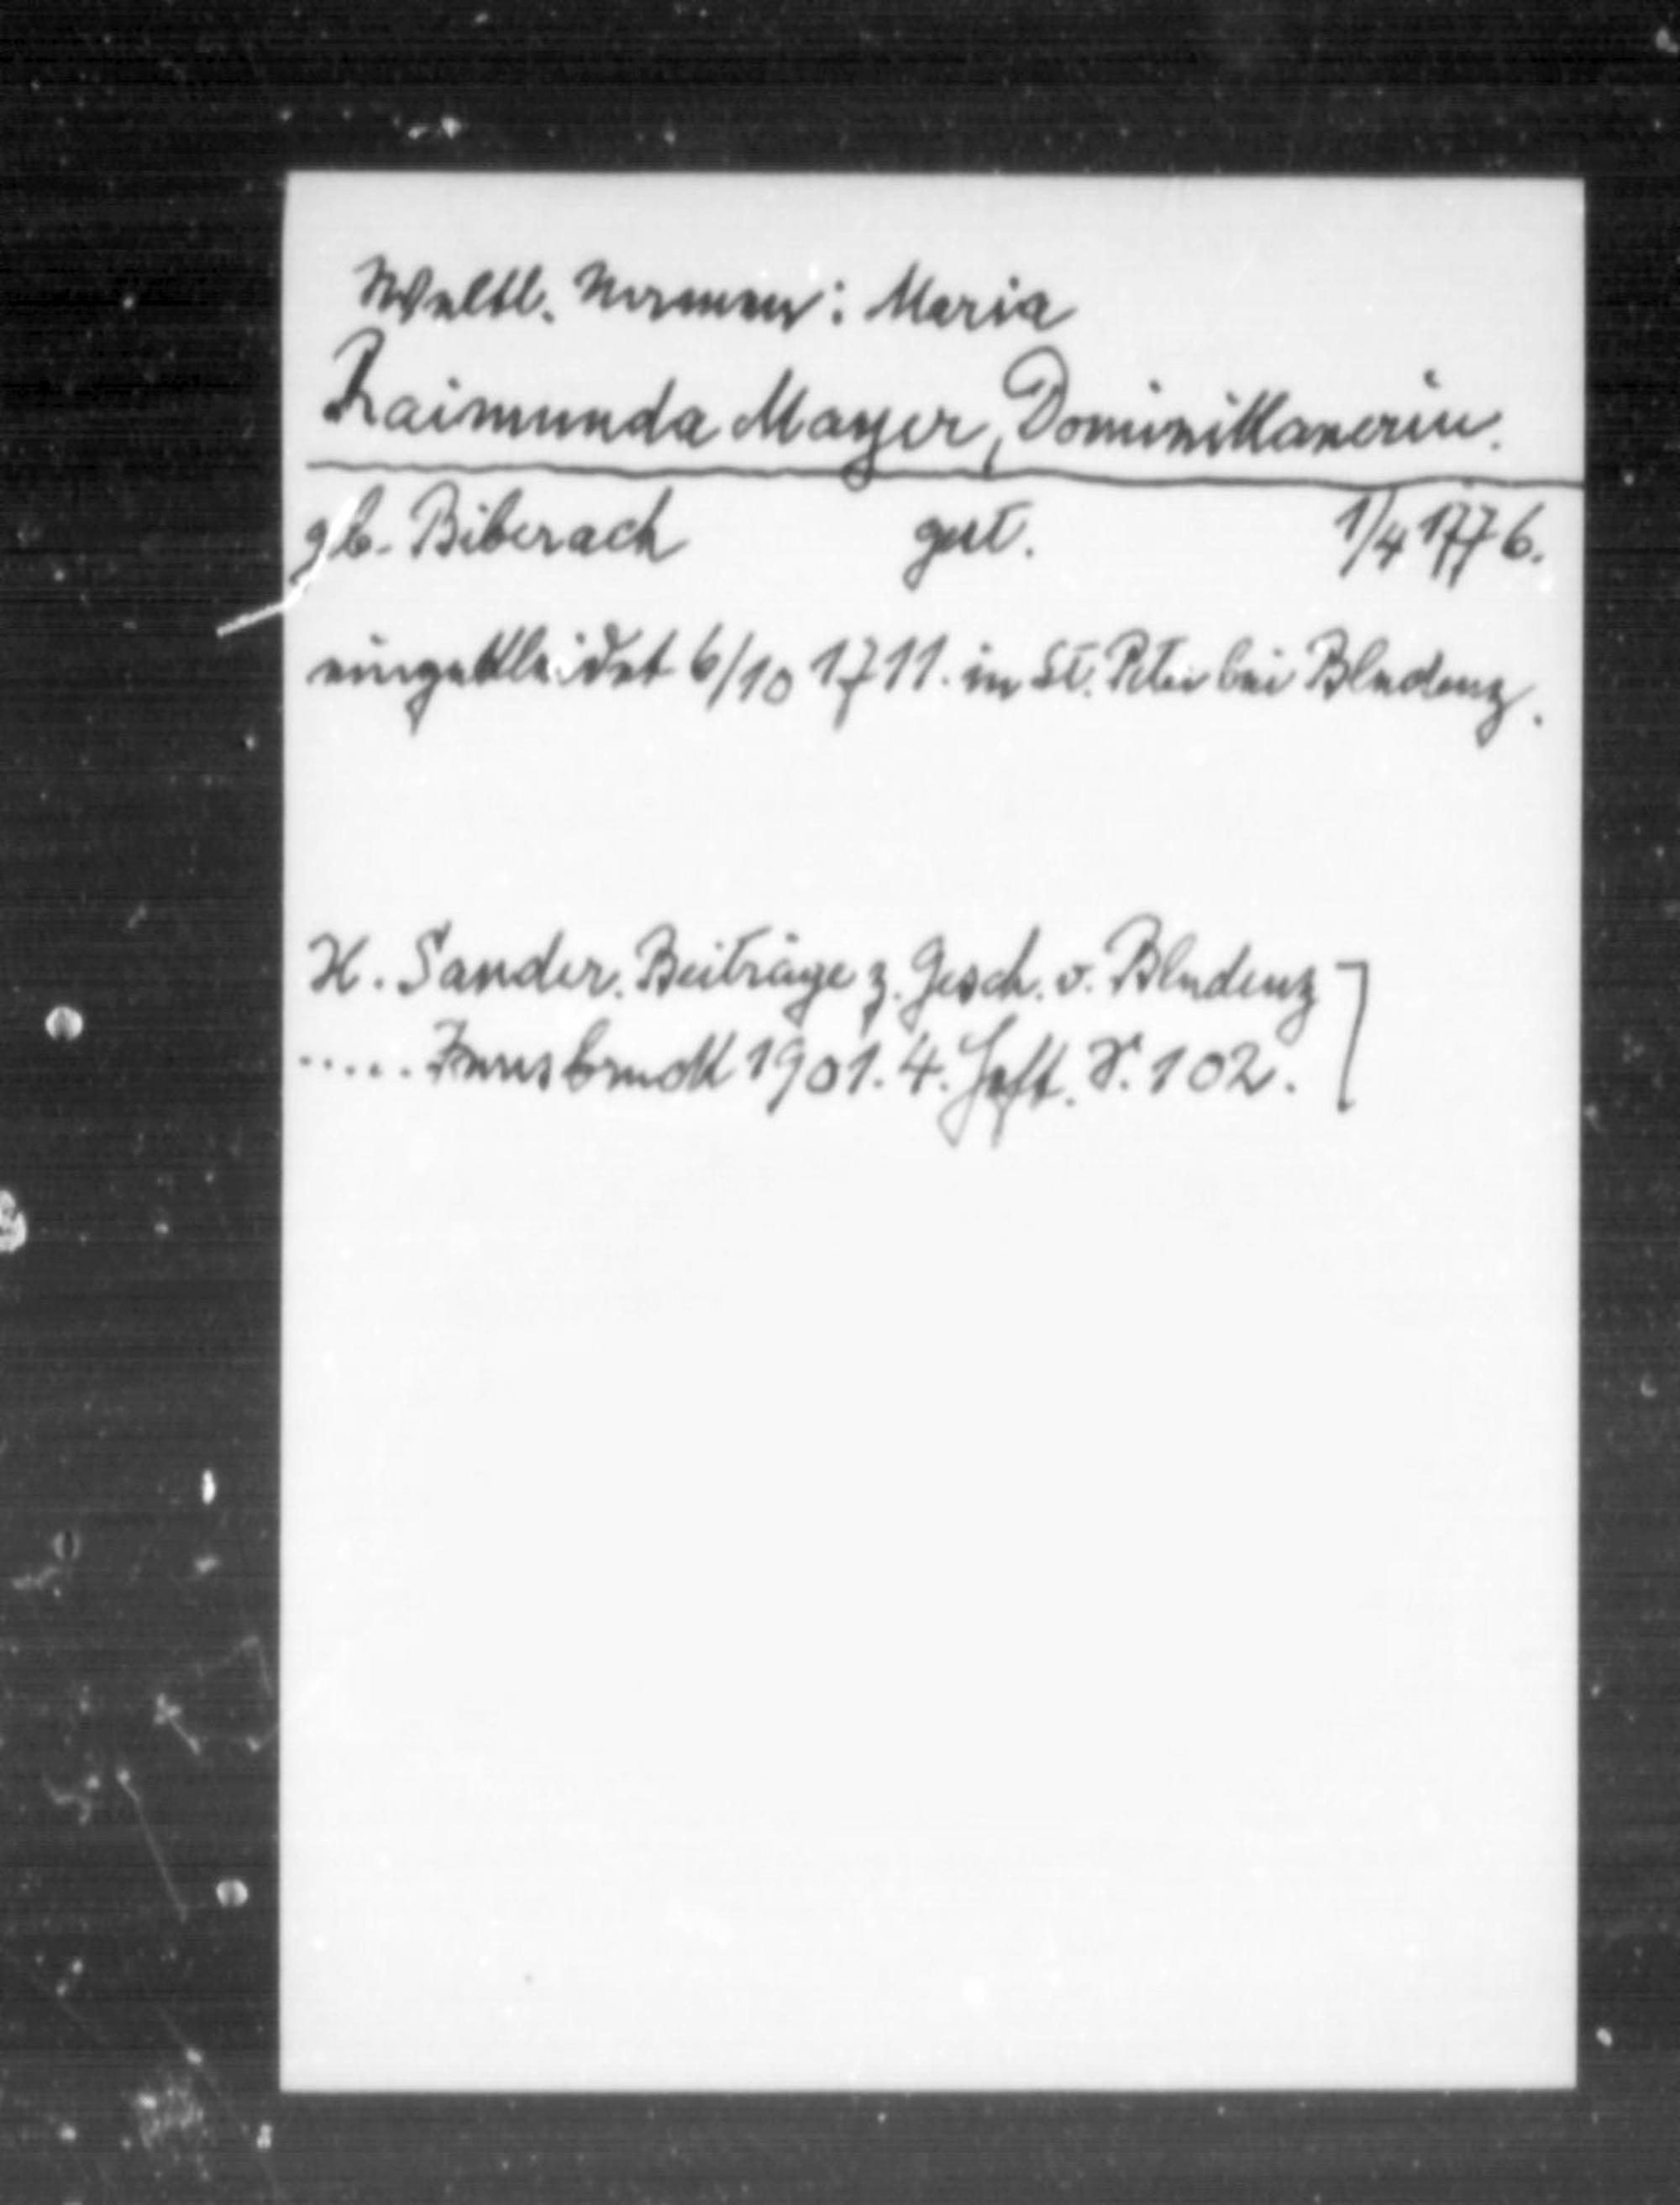 Weltl. Namen: Maria
Raimunda Mayer, Dominikanerin.
gb. Biberach gest. 1/4 1776.
eingekleidet 6/10 1711. in St. Peter bei Bludenz.
H. Sander. Beiträge z. Gesch. v. Bludenz
..... Innsbruck 1901. 4. Heft. S. 102.